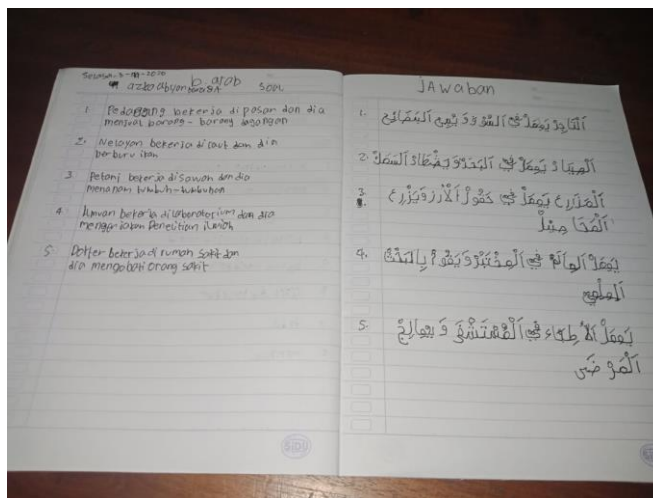 b. arab
SOAL
1. Pedagang bekerja di pasar dan dia
menjual barang-barang dagangan
2. Nelayan bekerja di laut dan dia
berburu ikan
3. Petani bekerja disawah dan dia
menanam tumbuh-tumbuhan
4. Ilmuan bekerja dilaboratorium dan dia
mengerjakan Penelitian ilmiah
5. Dokter bekerja di rumah sakit dan
dia mengobati orang sakit
JAWaban
1. اَلتَّاجِرُ يَعْمَلُ فِي السُّوْقِ وَ يَبِيْعُ اَلْبَضَائِعَ
2. اَلصَّيَادُ يَعْمَلُ فِي اَلْبَحْرِ وَيَصْطَادُ اَلسَّمَكَ
3. اَلْمُزَارِعُ يَعْمَلُ فِي حُقُوْلِ اَلْأَرُزِّ وَيَزْرَعُ
اَلْمَحَا صِيْلَ
4. يَعْمَلُ اَلْعَالِمُ فِي اَلْمُخْتَبَرِ وَيَقُوْمُ بِالْبَحْثِ
اَلْعِلْمِيِ
5. يَعْمَلُ اَلْأَطِبَاء فِي اَلْمُسْتَشْفَى وَ يُعَالِجُ
اَلْمَرْ ضَى
SIDU